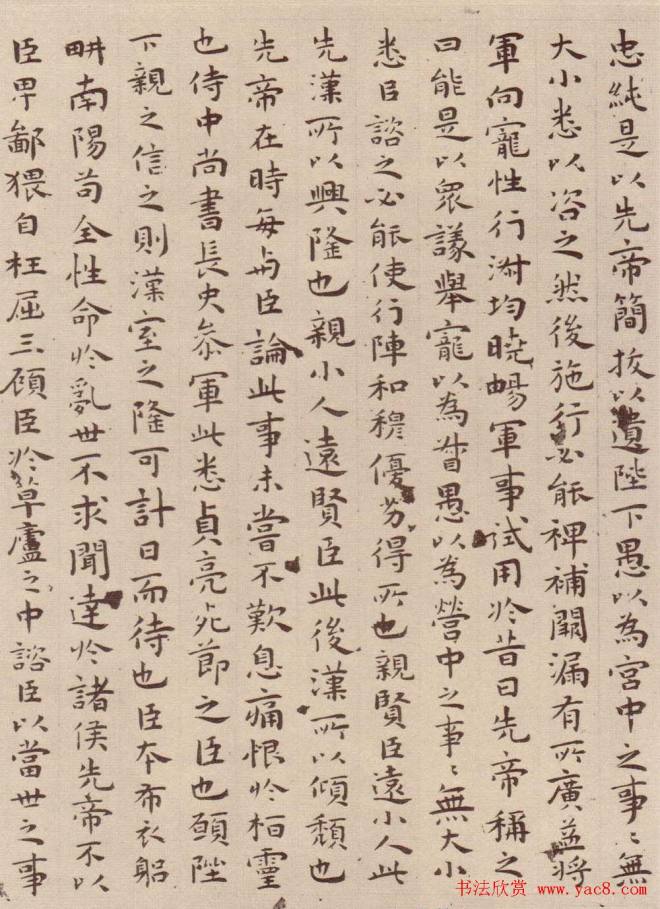 忠純是以先帝簡拔以遺陛下愚以為宮中之事〻無
大小悉以咨之然後施行必能裨補闕漏有所廣益將
軍向寵性行淑均曉暢軍事試用於昔日先帝稱之
曰能是以眾議舉寵以為督愚以為營中之事〻無大小
悉以諮之必能使行陣和穆優劣得所也親賢臣遠小人此
先漢所以興隆也親小人遠賢臣此後漢所以傾頹也
先帝在時每與臣論此事未嘗不歎息痛恨於桓靈
也侍中尚書長史參軍此悉貞亮死節之臣也願陛
下親之信之則漢室之隆可計日而待也臣本布衣躬
耕南陽苟全性命於亂世不求聞達於諸侯先帝不以
臣卑鄙猥自枉屈三顧臣於草廬之中諮臣以當世之事
书法欣赏 www.yac8.com